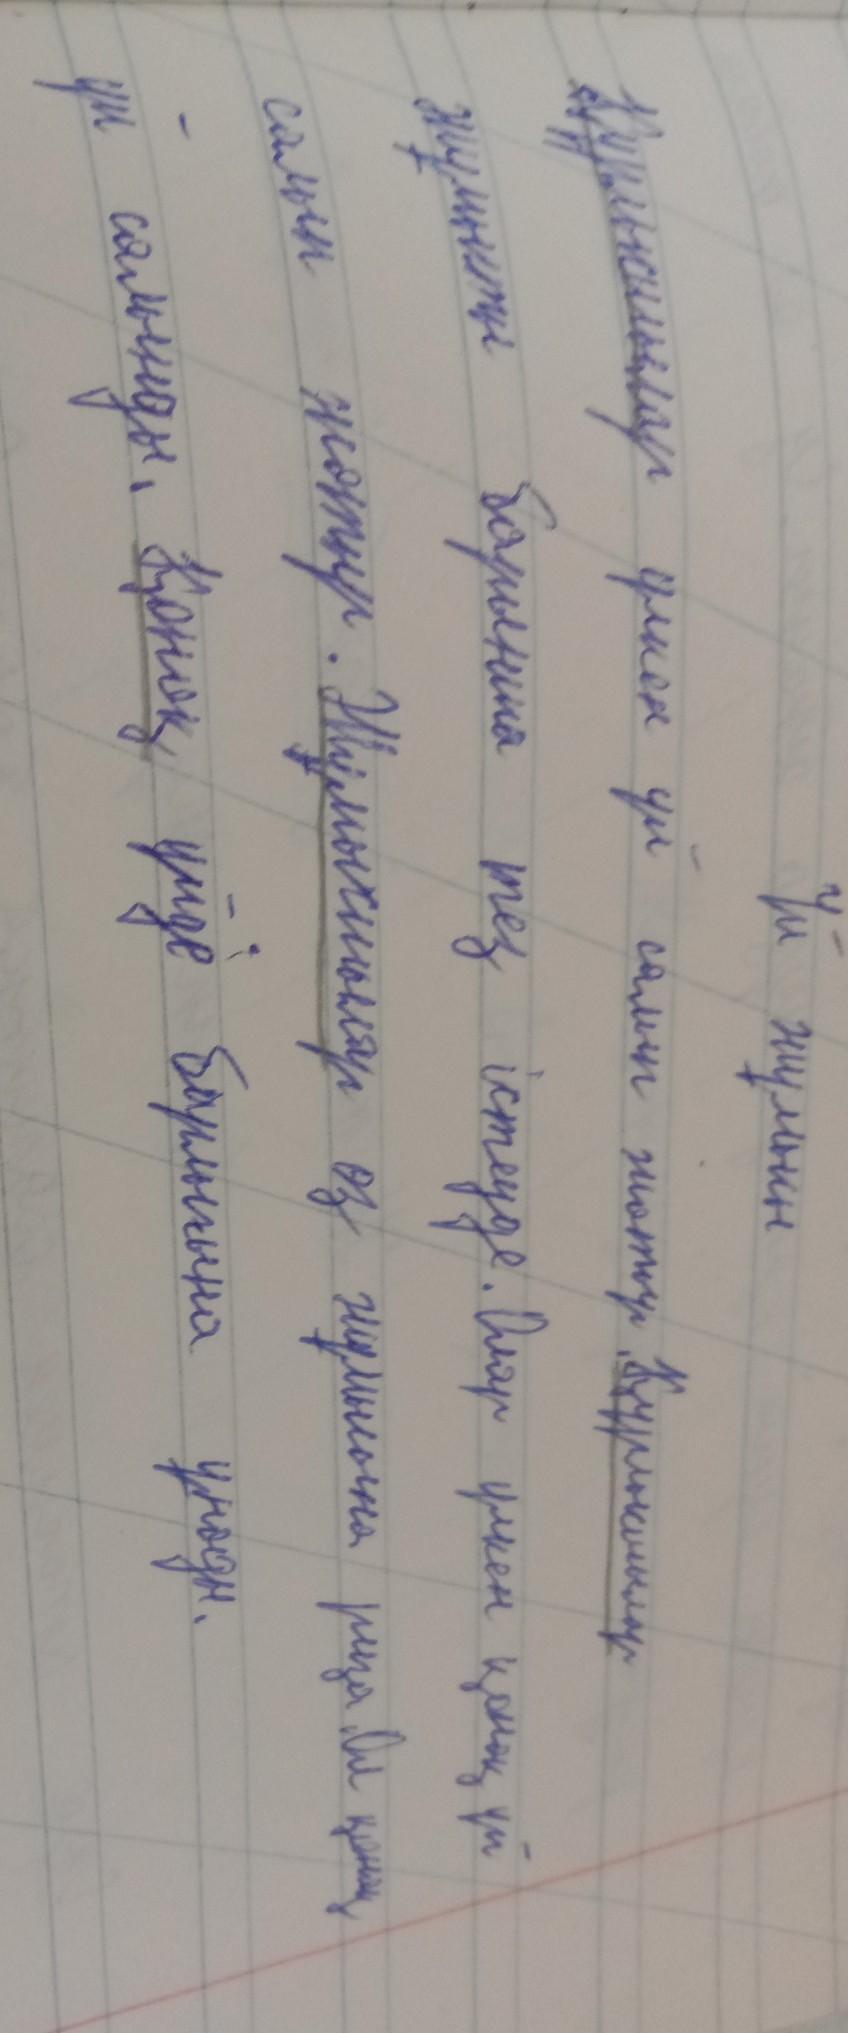 Үй жұмысы
Құрылысшылар үлкен үй салып жатыр. Құрылысшылар
жұмысты барынша тез істеуде. Олар үлкен қонақ үй
салып жатыр. Жұмысшылар өз жұмысына риза. Ол қонақ
үй салынды. Қонақ үйде барлығына ұнады.